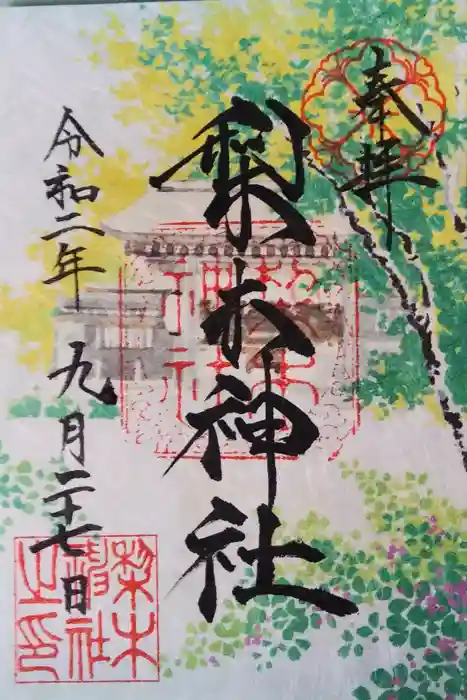 奉拝
梨木神社
令和二年
九月二十七日
梨木
神社